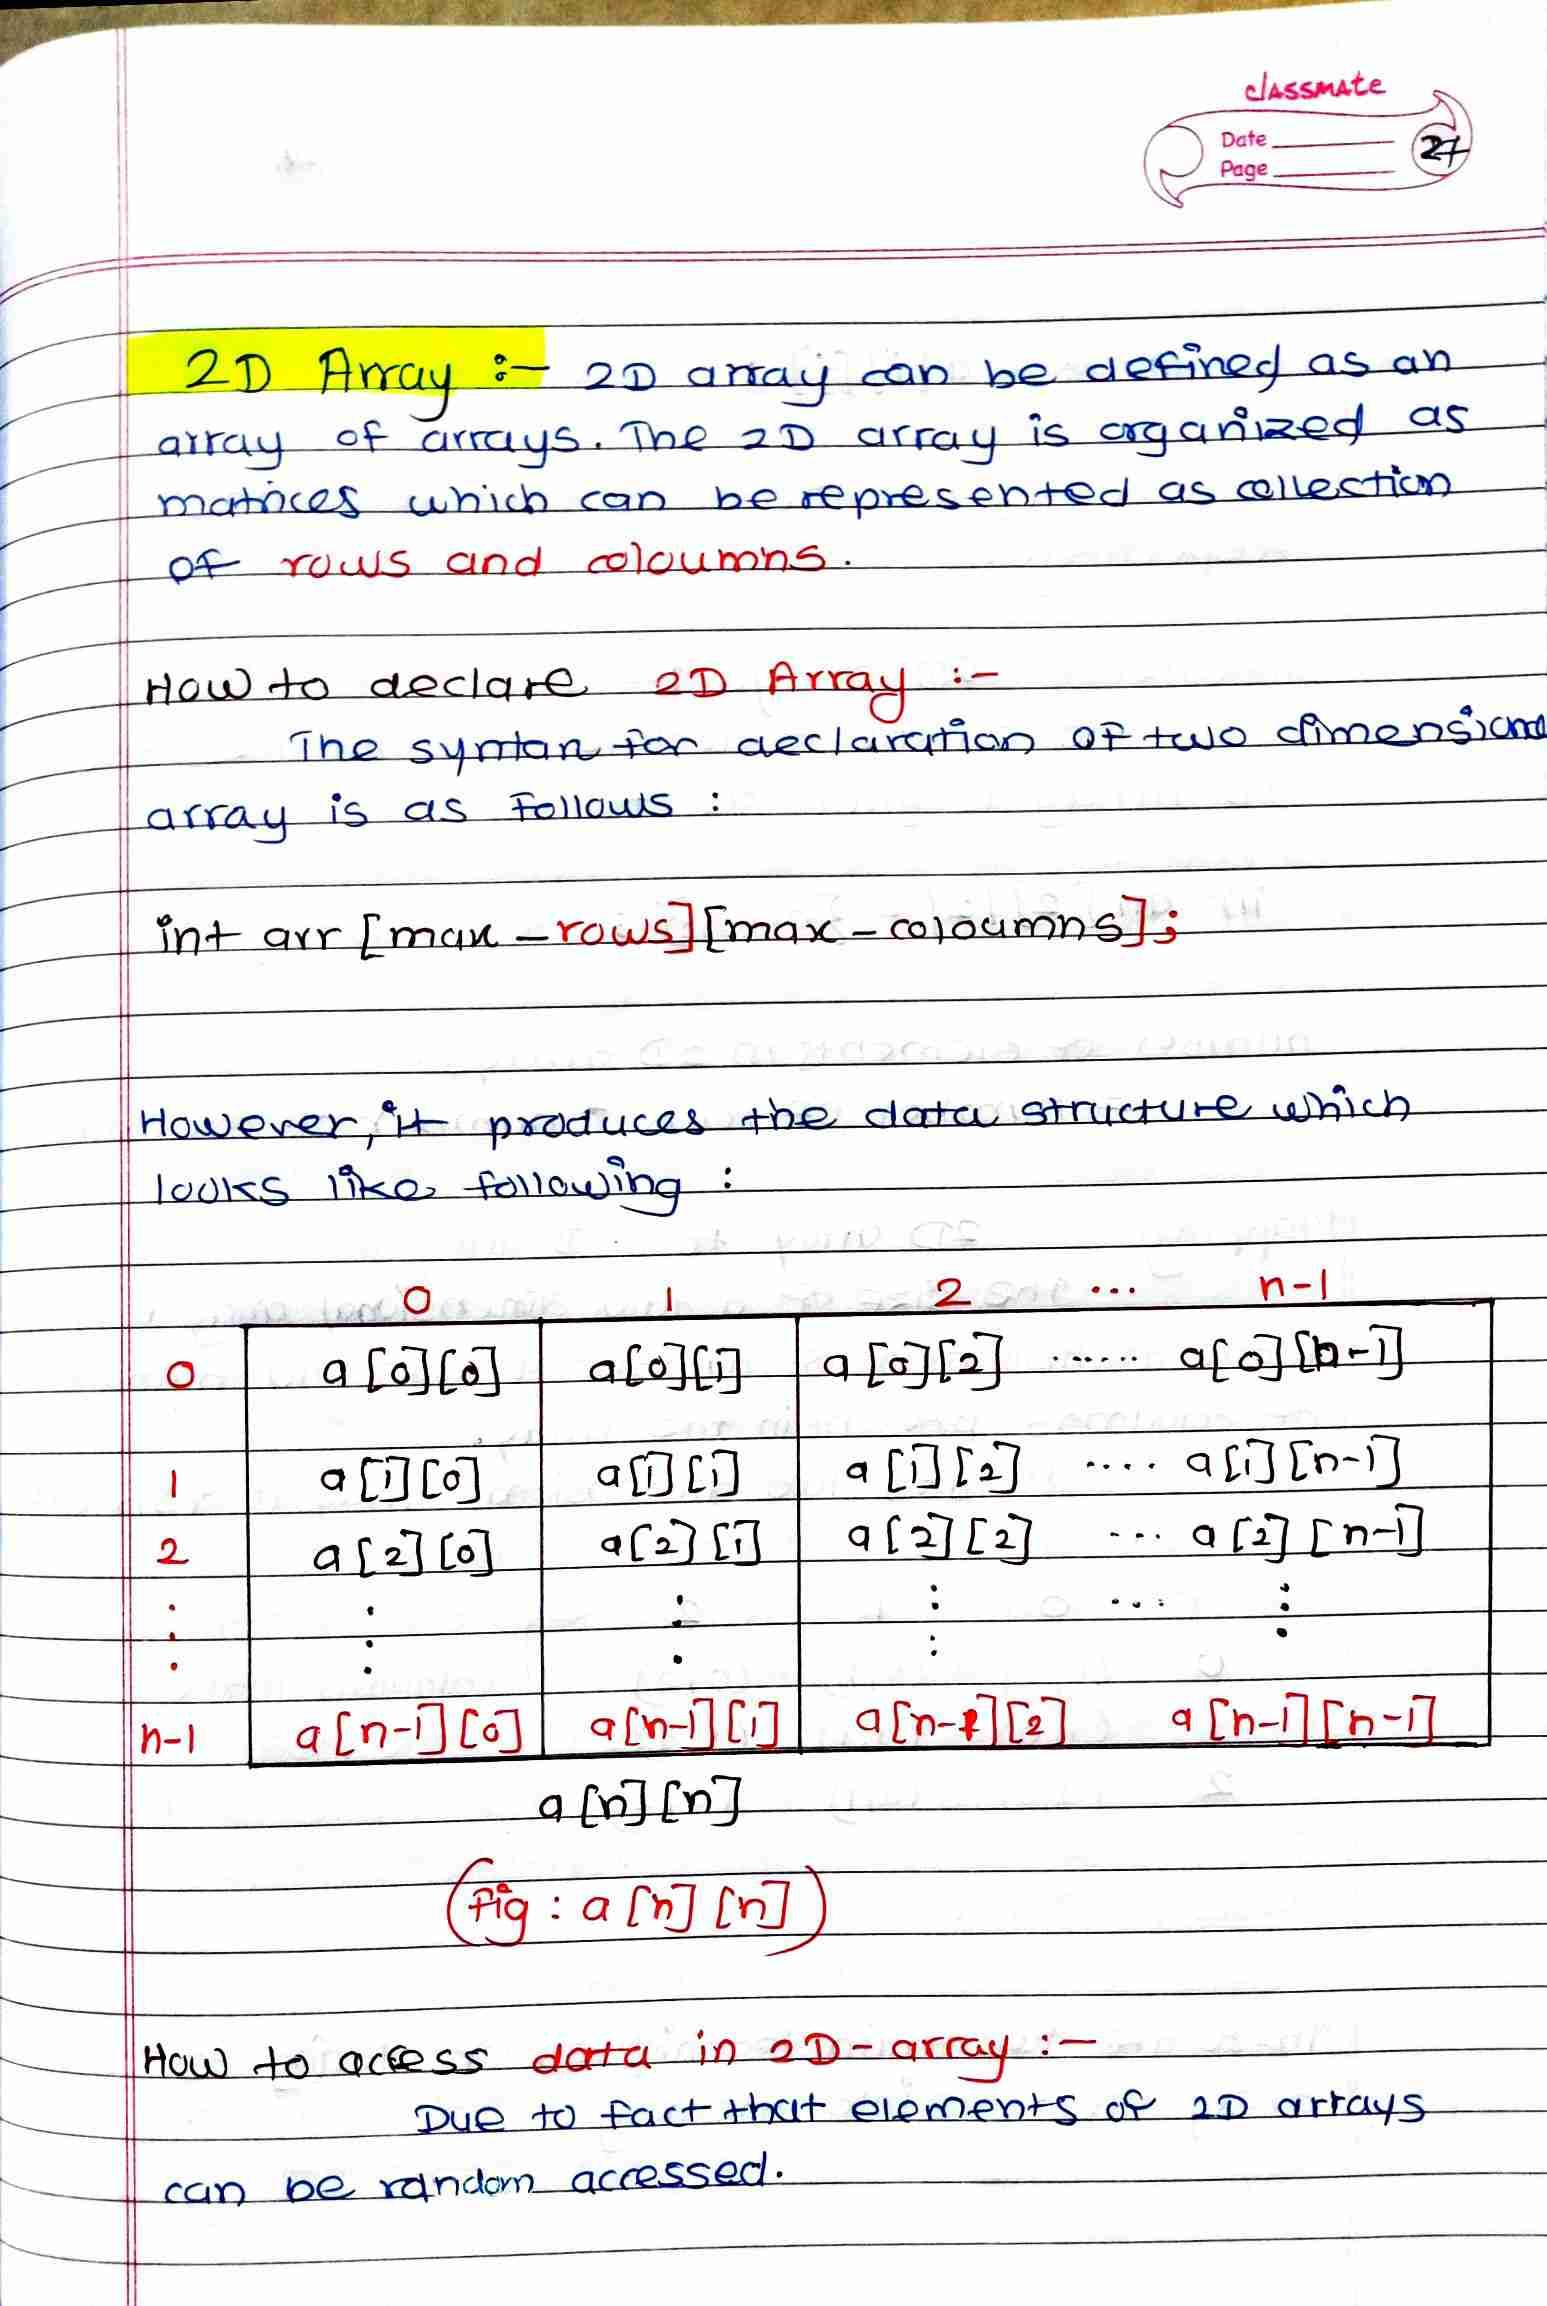 classmate
Date
Page
27
2D Array :- 2D array can be defined as an
array of arrays. The 2D array is organized as
matrices which can be represented as collection
of rows and coloumns.
How to declare 2D Array :-
The syntan for declaration of two dimensional
array is as follows :
int arr [max - rows][max - coloumns];
However, it produces the data structure which
looks like following :
0 1 2 ... n-1
0 a[0][0] a[0][1] a[0][2] ...... a[0][n-1]
1 a[1][0] a[1][1] a[1][2] .... a[1][n-1]
2 a[2][0] a[2][1] a[2][2] ... a[2][n-1]
n-1 a[n-1][0] a[n-1][1] a[n-1][2] a[n-1][n-1]
a[n][n]
(fig : a[n][n])
How to access data in 2D-array :-
Due to fact that elements of 2D arrays
can be random accessed.